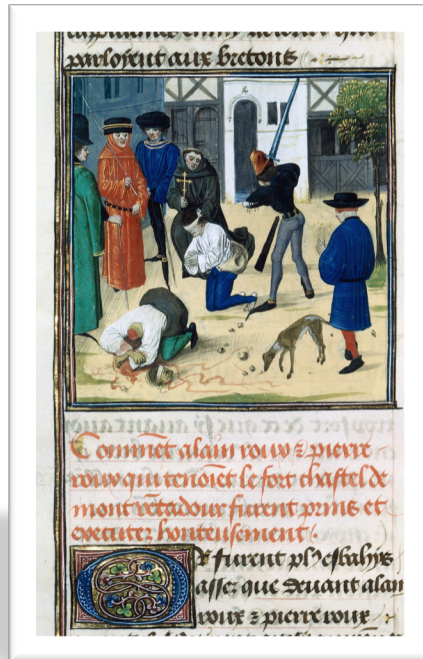 parlosent aux bretons
Comment alain roux & pierre
roux qui tenoiet le fort chastel de
mont vētadour furent prins et
executez honteusement
Or furent plꝰ esbahis
assez que deuant alain
roux & pierre roux